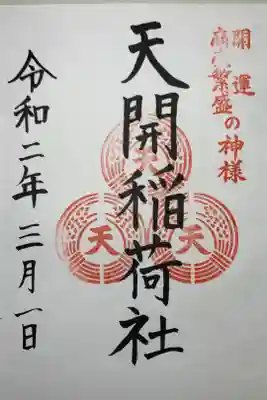 開運
商売繁盛の神様
天開稲荷社
天
天
天
令和二年三月一日